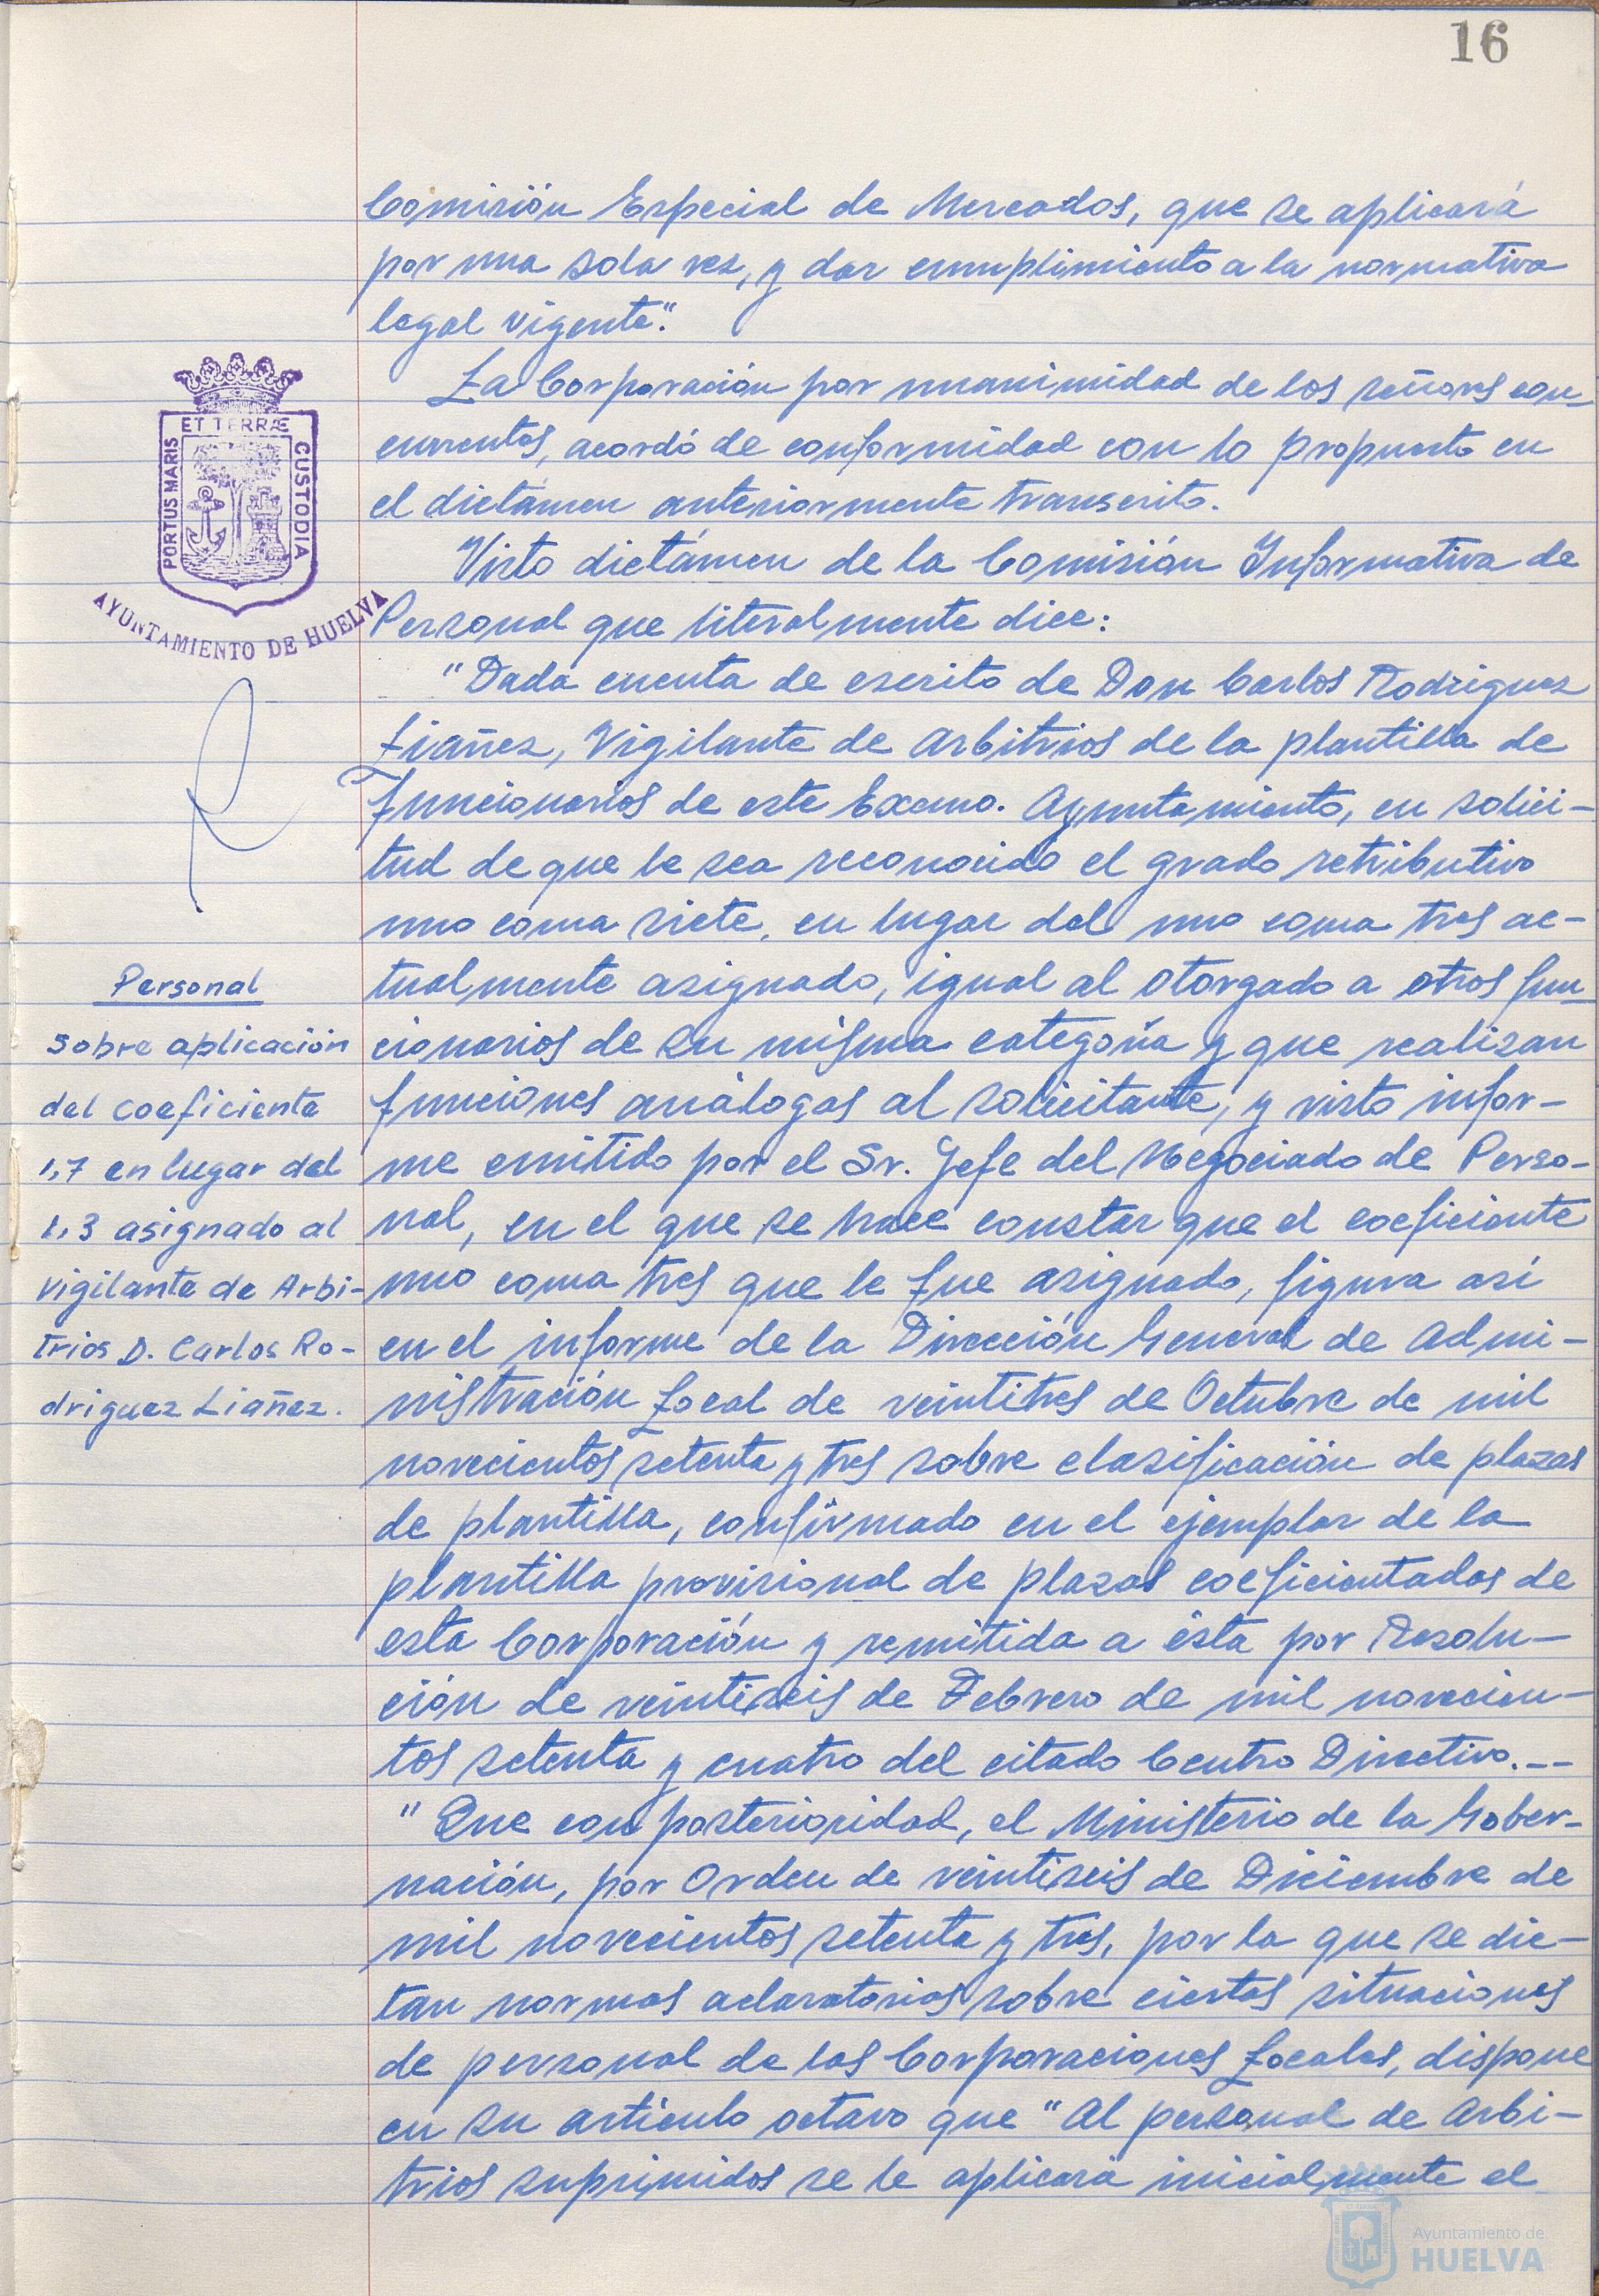 16
Comisión Especial de Mercados, que se aplicará
por una sola vez, y dar cumplimiento a la normativa
legal vigente".
La Corporación por unanimidad de los señores con-
currentes, acordó de conformidad con lo propuesto en
el dictámen anteriormente transcrito.
Visto dictámen de la Comisión Informativa de
Personal que literalmente dice:
"Dada cuenta de escrito de Don Carlos Rodriguez
Liañez, Vigilante de Arbitrios de la plantilla de
Funcionarios de este Excmo. Ayuntamiento, en solici-
tud de que le sea reconocido el grado retributivo
uno coma siete, en lugar del uno coma tres ac-
tualmente asignado, igual al otorgado a otros fun-
cionarios de su misma categoría y que realizan
funciones análogas al solicitante, y visto infor-
me emitido por el Sr. Jefe del Negociado de Perso-
nal, en el que se hace constar que el coeficiente
uno coma tres que le fue asignado, figura así
en el informe de la Dirección General de Admi-
nistración Local de veintitres de Octubre de mil
novecientos setenta y tres sobre clasificación de plazas
de plantilla, confirmado en el ejemplar de la
plantilla provisional de plazas coeficientadas de
esta Corporación y remitida a ésta por Resolu-
ción de veintiseis de Febrero de mil novecien-
tos setenta y cuatro del citado Centro Directivo.--
"Que con posterioridad, el Ministerio de la Gober-
nación, por Orden de veintiseis de Diciembre de
mil novecientos setenta y tres, por la que se dic-
tan normas aclaratorias sobre ciertas situaciones
de personal de las Corporaciones Locales, dispone
en su artículo octavo que "Al personal de Arbi-
trios suprimidos se le aplicará inicialmente el
PORTUS MARIS
ET TERRÆ
CUSTODIA
AYUNTAMIENTO DE HUELVA
Personal
Sobre aplicación
del coeficiente
1,7 en lugar del
1,3 asignado al
Vigilante de Arbi-
trios D. Carlos Ro-
driguez Liañez.
Ayuntamiento de
HUELVA